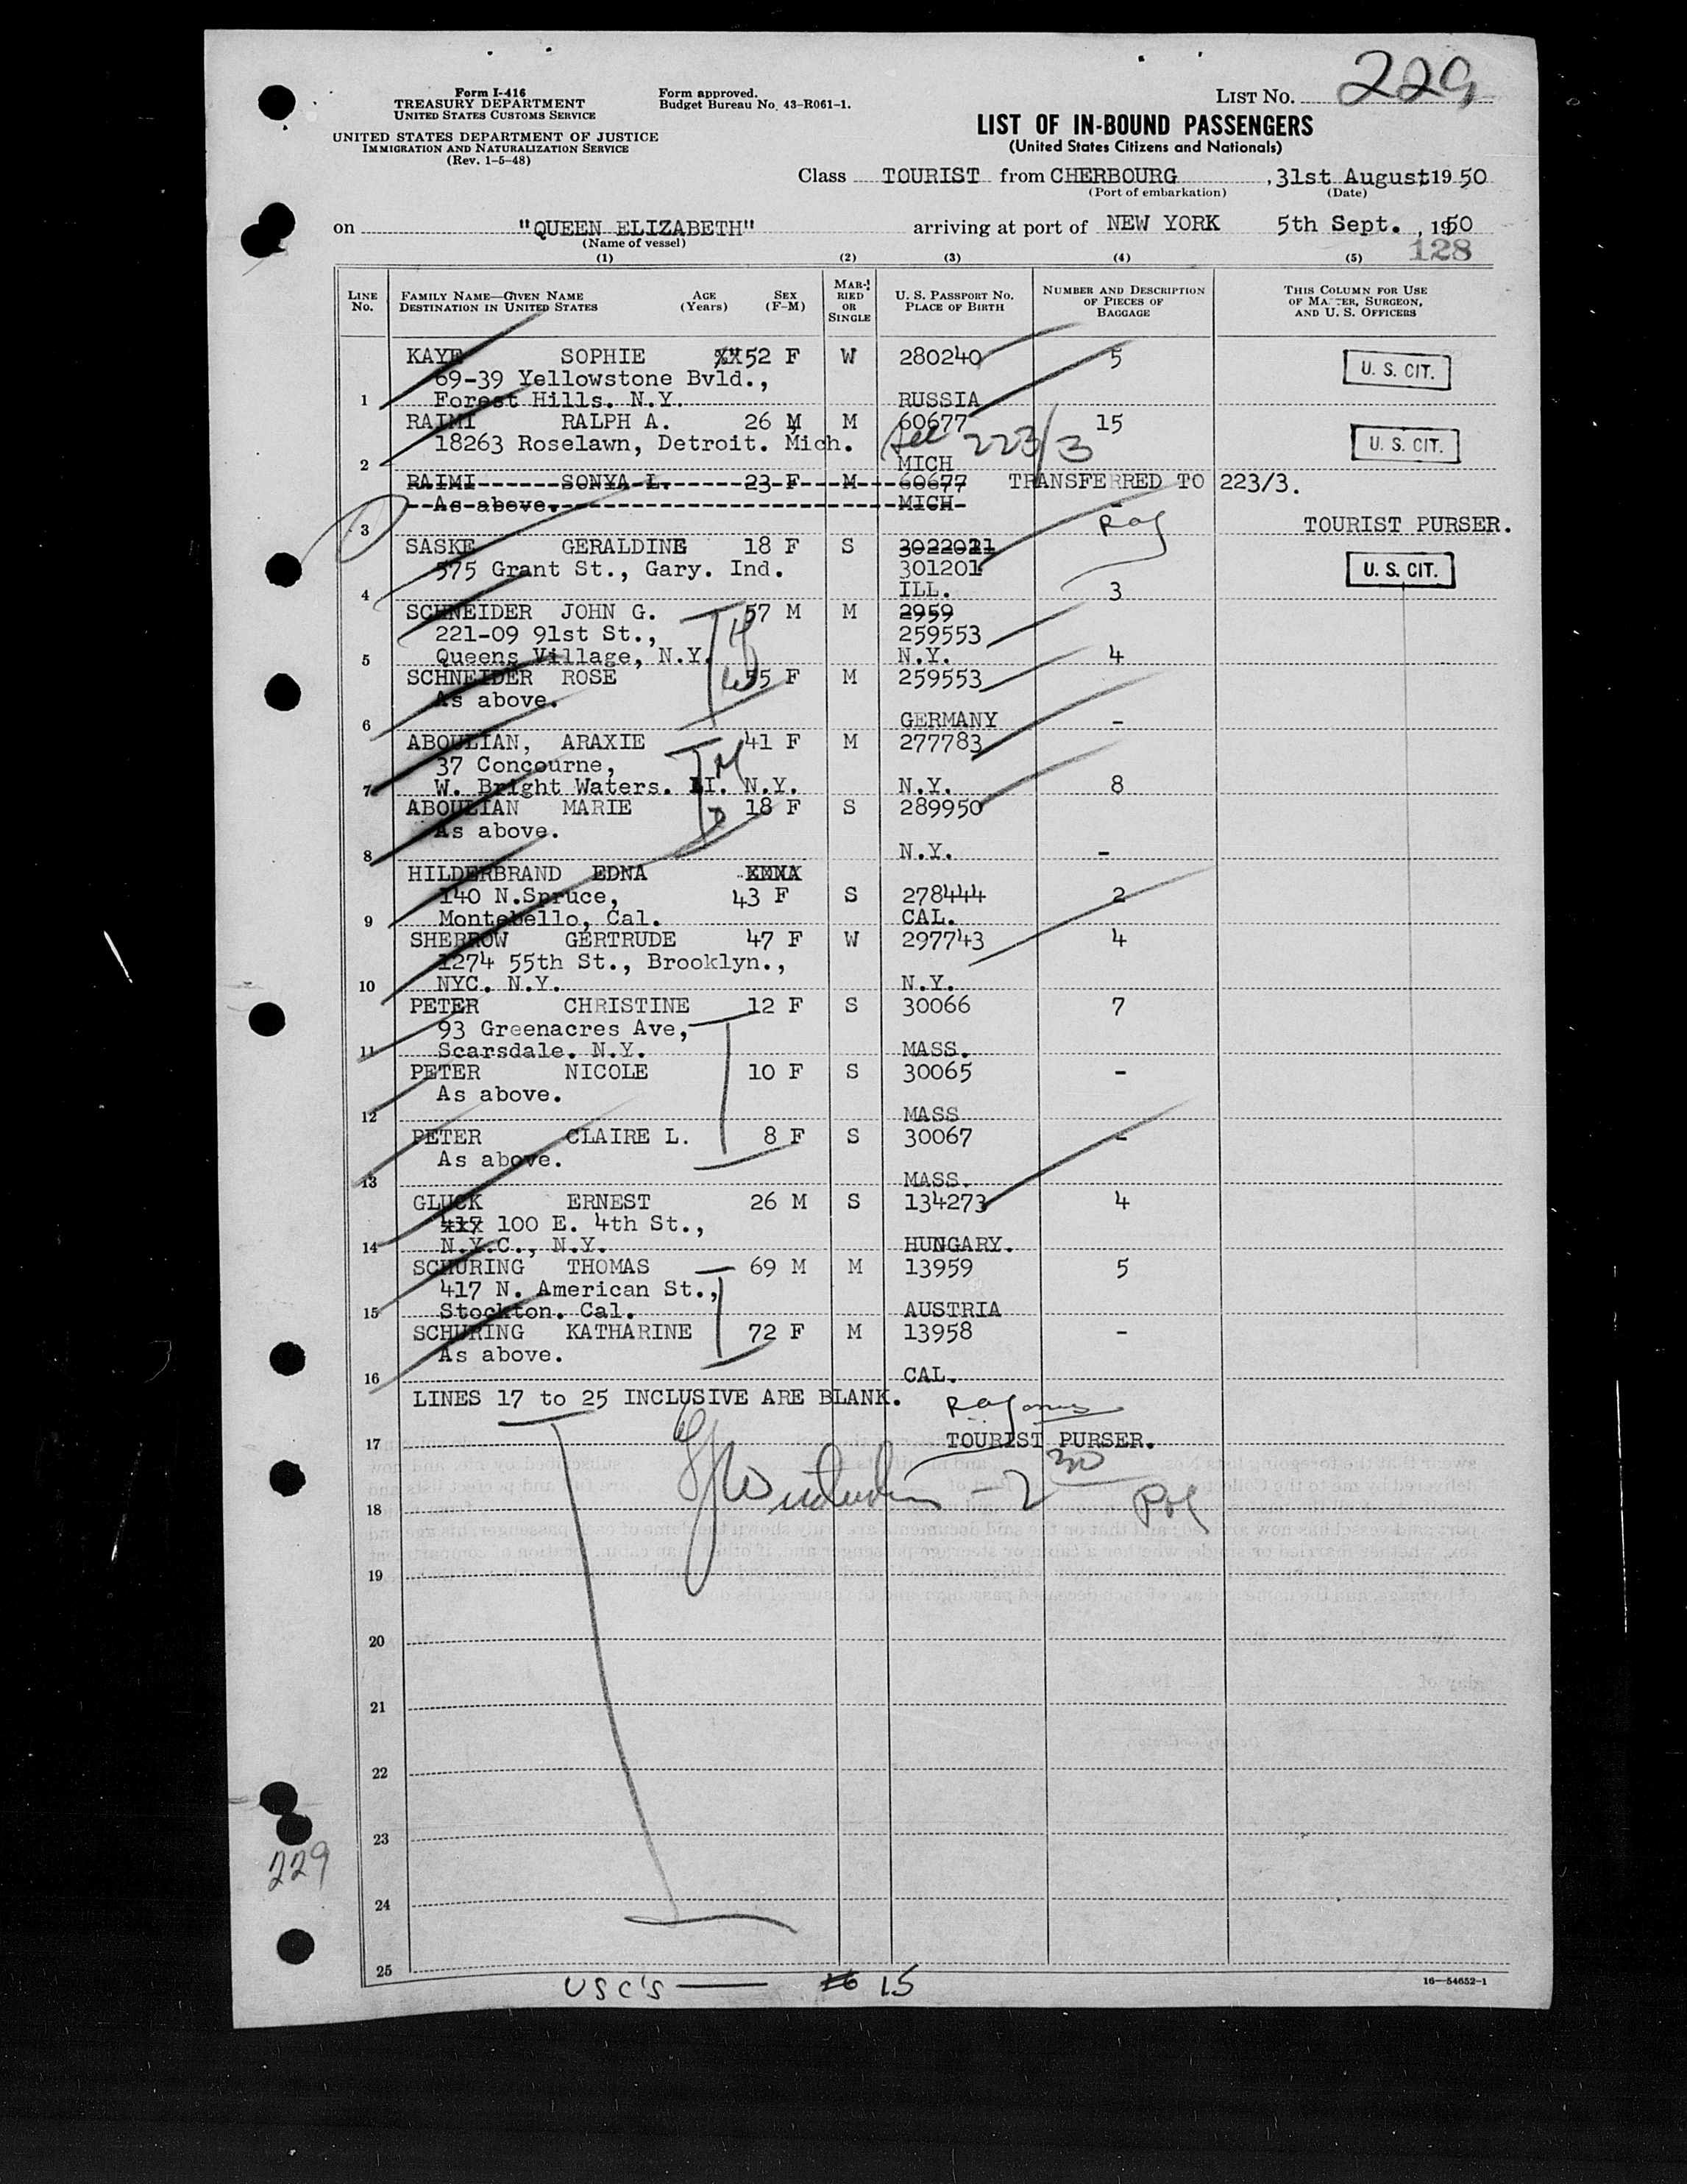 Form I-416
TREASURY DEPARTMENT
UNITED STATES CUSTOMS SERVICE
UNITED STATES DEPARTMENT OF JUSTICE
IMMIGRATION AND NATURALIZATION SERVICE
(Rev. 1-5-48)
Form approved.
Budget Bureau No. 43-R061-1.
LIST No. 229
LIST OF IN-BOUND PASSENGERS
(United States Citizens and Nationals)
Class TOURIST from CHERBOURG, 31st August, 1950
(Port of embarkation) (Date)
on "QUEEN ELIZABETH" arriving at port of NEW YORK 5th Sept., 1950
(Name of vessel)
128
(1) (2) (3) (4) (5)
LINE No. FAMILY NAME—GIVEN NAME DESTINATION IN UNITED STATES AGE (Years) SEX (F-M) MARRIED OR SINGLE U. S. PASSPORT NO. PLACE OF BIRTH NUMBER AND DESCRIPTION OF PIECES OF BAGGAGE THIS COLUMN FOR USE OF MASTER, SURGEON, AND U. S. OFFICERS
KAYE SOPHIE 52 F W 280240 5 U. S. CIT.
69-39 Yellowstone Bvld.,
1 Forest Hills. N.Y. RUSSIA
RAIMI RALPH A. 26 M M 60677 15 U. S. CIT.
18263 Roselawn, Detroit. Mich. See 223/3
2 MICH
RAIMI SONYA L. 23 F M 60677 TRANSFERRED TO 223/3.
As above. MICH
3 TOURIST PURSER.
SASKE GERALDINE 18 F S 3022021
575 Grant St., Gary. Ind. 301201 U. S. CIT.
4 ILL. 3
SCHNEIDER JOHN G. 57 M M 2959
221-09 91st St., 259553
5 Queens Village, N.Y. N.Y. 4
SCHNEIDER ROSE 55 F M 259553
As above.
6 GERMANY -
ABOULIAN, ARAXIE 41 F M 277783
37 Concourne,
7 W. Bright Waters. LI. N.Y. N.Y. 8
ABOULIAN MARIE 18 F S 289950
As above.
8 N.Y. -
HILDERBRAND EDNA
140 N.Spruce, 43 F S 278444 2
9 Montebello, Cal. CAL.
SHERROW GERTRUDE 47 F W 297743 4
1274 55th St., Brooklyn.,
10 NYC. N.Y. N.Y.
PETER CHRISTINE 12 F S 30066 7
93 Greenacres Ave,
11 Scarsdale. N.Y. MASS.
PETER NICOLE 10 F S 30065 -
As above.
12 MASS
PETER CLAIRE L. 8 F S 30067 -
As above.
13 MASS.
GLUCK ERNEST 26 M S 134273 4
417 100 E. 4th St.,
14 N.Y.C., N.Y. HUNGARY.
SCHURING THOMAS 69 M M 13959 5
417 N. American St.,
15 Stockton. Cal. AUSTRIA
SCHURING KATHARINE 72 F M 13958 -
As above.
16 CAL.
LINES 17 to 25 INCLUSIVE ARE BLANK.
17 TOURIST PURSER.
18
19
20
21
22
23
229
24
25
USC'S — 16 15
16—54652-1